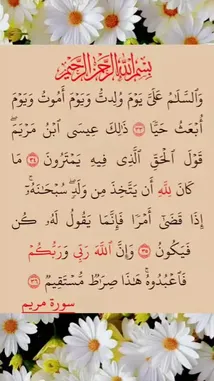 بسم الله الرحمن الرحيم
وَالسَّلَامُ عَلَىَّ يَوْمَ وُلِدتُّ وَيَوْمَ أَمُوتُ وَيَوْمَ
أُبْعَثُ حَيًّا ٣٣ ذَٰلِكَ عِيسَى ابْنُ مَرْيَمَ ۖ
قَوْلَ الْحَقِّ الَّذِى فِيهِ يَمْتَرُونَ ٣٤ مَا
كَانَ لِلَّهِ أَن يَتَّخِذَ مِن وَلَدٍ ۖ سُبْحَٰنَهُۥٓ ۚ
إِذَا قَضَىٰٓ أَمْرًا فَإِنَّمَا يَقُولُ لَهُۥ كُن
فَيَكُونُ ٣٥ وَإِنَّ اللَّهَ رَبِّى وَرَبُّكُمْ
فَاعْبُدُوهُ ۚ هَٰذَا صِرَٰطٌ مُّسْتَقِيمٌ ٣٦
سورة مريم